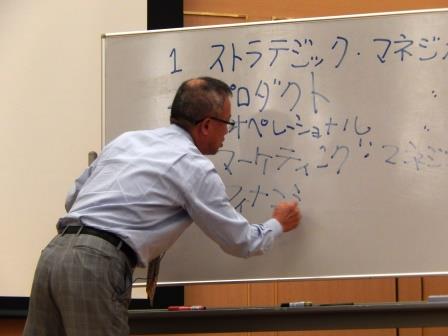 1 ストラテジック・マネジ
プロダクト 〃
オペレーショナル 〃
マーケティング〃マネジ
フィナンシ